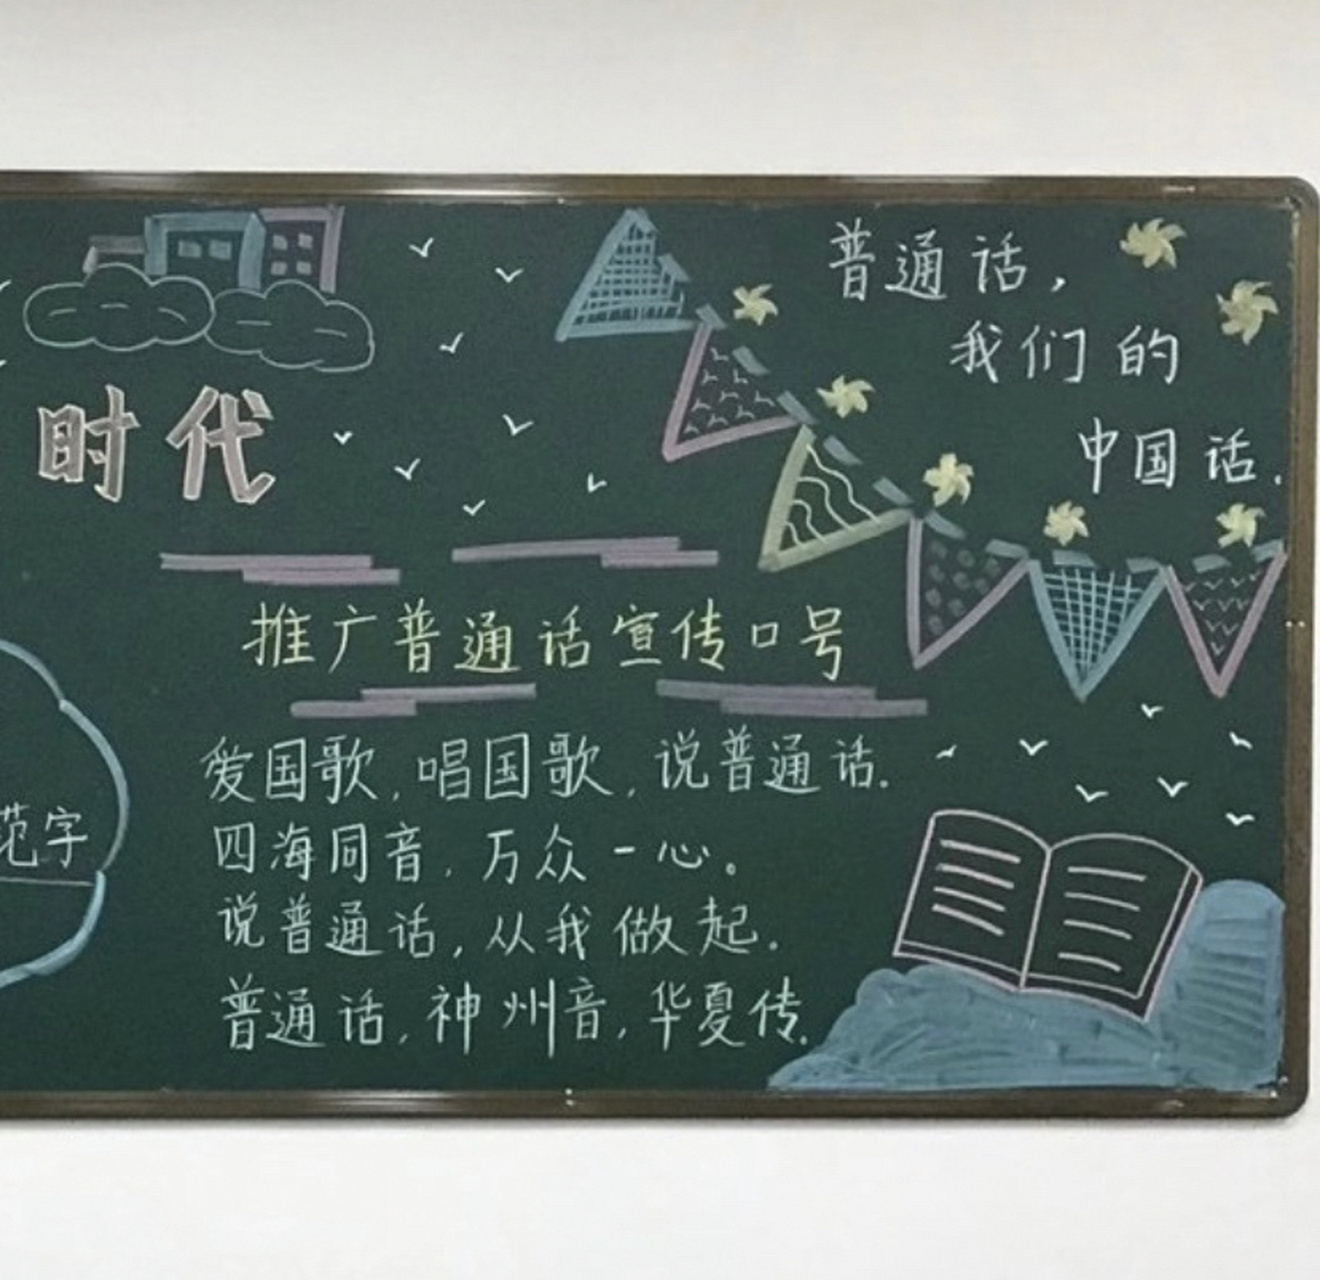 普通话,
我们的
中国话.
时代
推广普通话宣传口号
爱国歌,唱国歌,说普通话.
四海同音.万众一心。
范字
说普通话,从我做起.
普通话,神州音,华夏传.